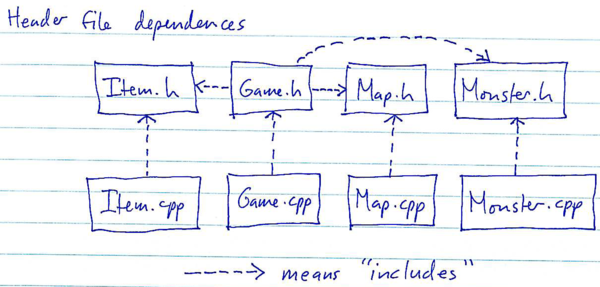 Header file dependences
Item.h Game.h Map.h Monster.h
Item.cpp Game.cpp Map.cpp Monster.cpp
means "includes"